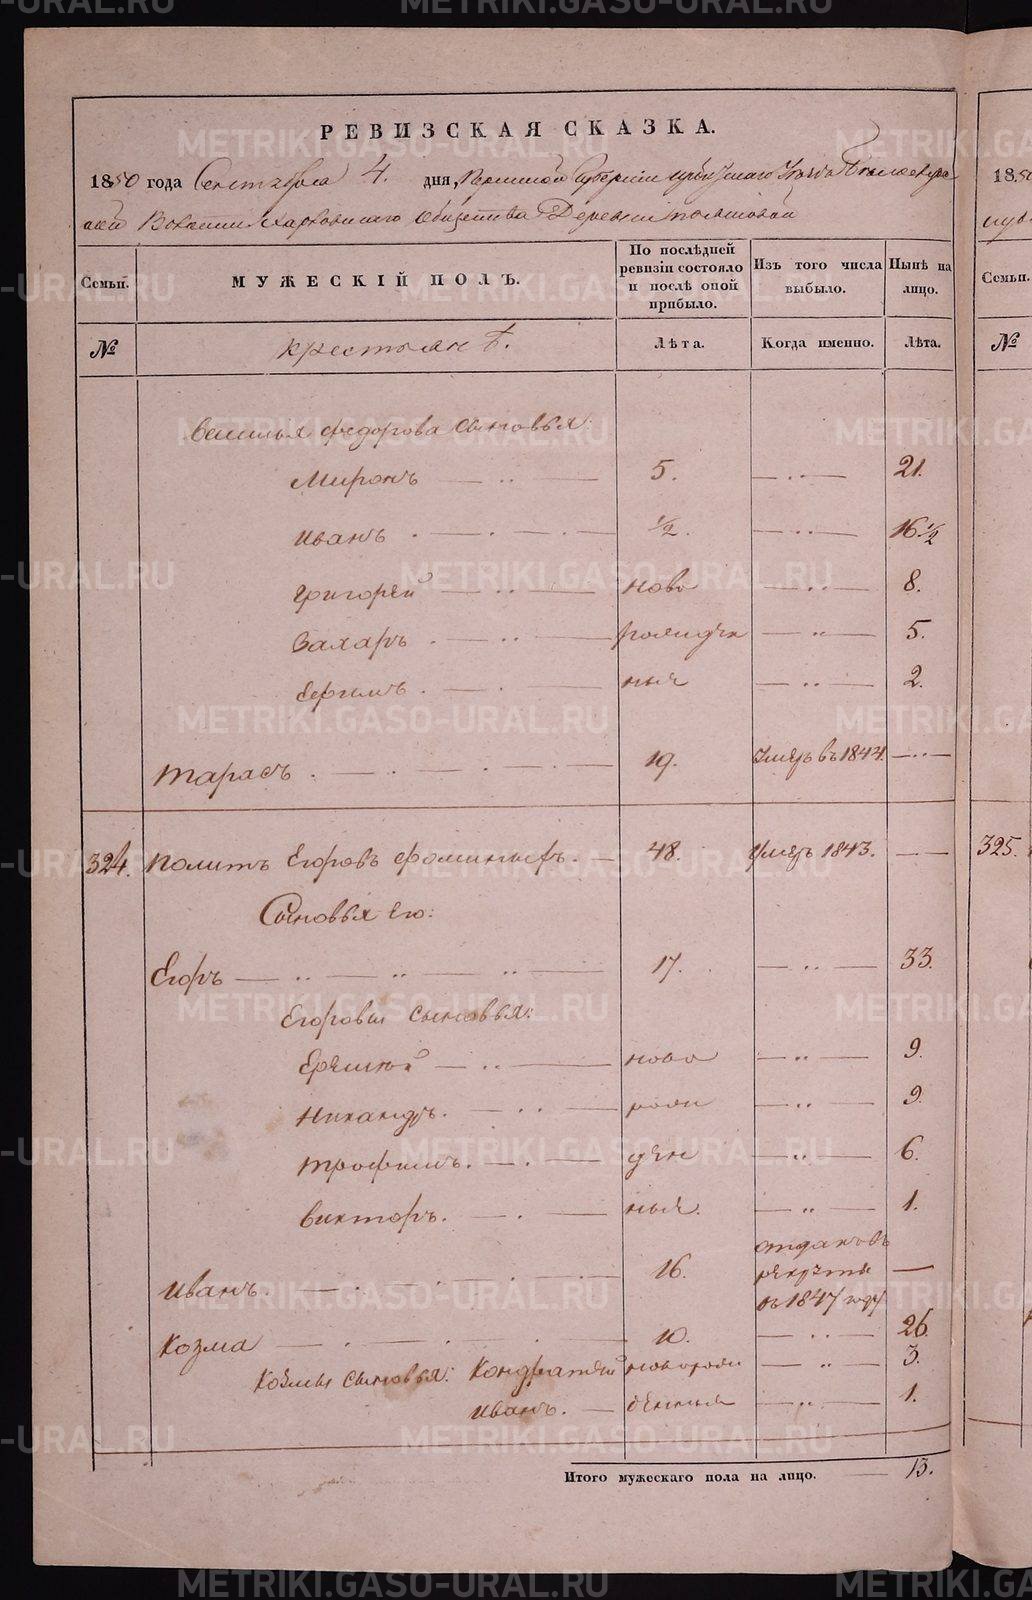 РЕВИЗСКАЯ СКАЗКА.
1850 года Сентября 4. дня, Пермской Губернии Ирбитскаго Уезда
Волости Харловскаго общества Деревни
Семьи. МУЖЕСКІЙ ПОЛЪ. По послѣдней ревизіи состояло и послѣ оной прибыло. Изъ того числа выбыло. Нынѣ на лицо.
№ крестьянѣ. Лѣта. Когда именно. Лѣта.
Василья Федорова сыновья:
Миронъ 5. 21.
Иванъ 1/2. 16 1/2
Григорей ново 8.
Захаръ рожден 5.
Ефимъ ные 2.
Тарасъ 19. умеръ въ 1844.
324. Политъ Егоровъ Фоминыхъ. 48. умеръ 1843.
Сыновья его:
Егоръ 17. 33.
Егоровы сыновья:
Еремей ново 9.
Никандръ. рож 9.
Трофимъ. ден 6.
Викторъ. ные. 1.
Иванъ. 16. отданъ въ рекруты въ 1847 году
Козма 10. 26.
Козмы сыновья: Кондратей новорож 3.
Иванъ. денные 1.
Итого мужескаго пола на лицо. 13.
1850
Семьи.
№
325.
METRIKI.GASO-URAL.RU